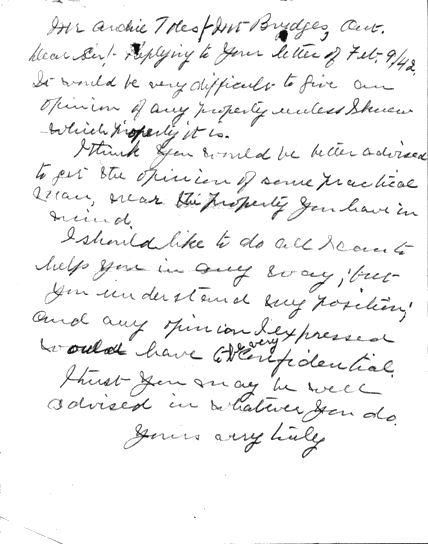 Mr Archie Toles / Mt Bridges, Ont.
Dear Sir/- Replying to your letter of Feb. 9/42,
It would be very difficult to give an
opinion of any property unless I knew
which property it is.
I think you would be better advised
to get the opinion of some practical
man, near the property you have in
mind.
I should like to do all I can to
help you in any way; but
you understand my position;
and any opinion I expressed
would have to be very confidential.
I trust you may be well
advised in whatever you do.
Yours very truly